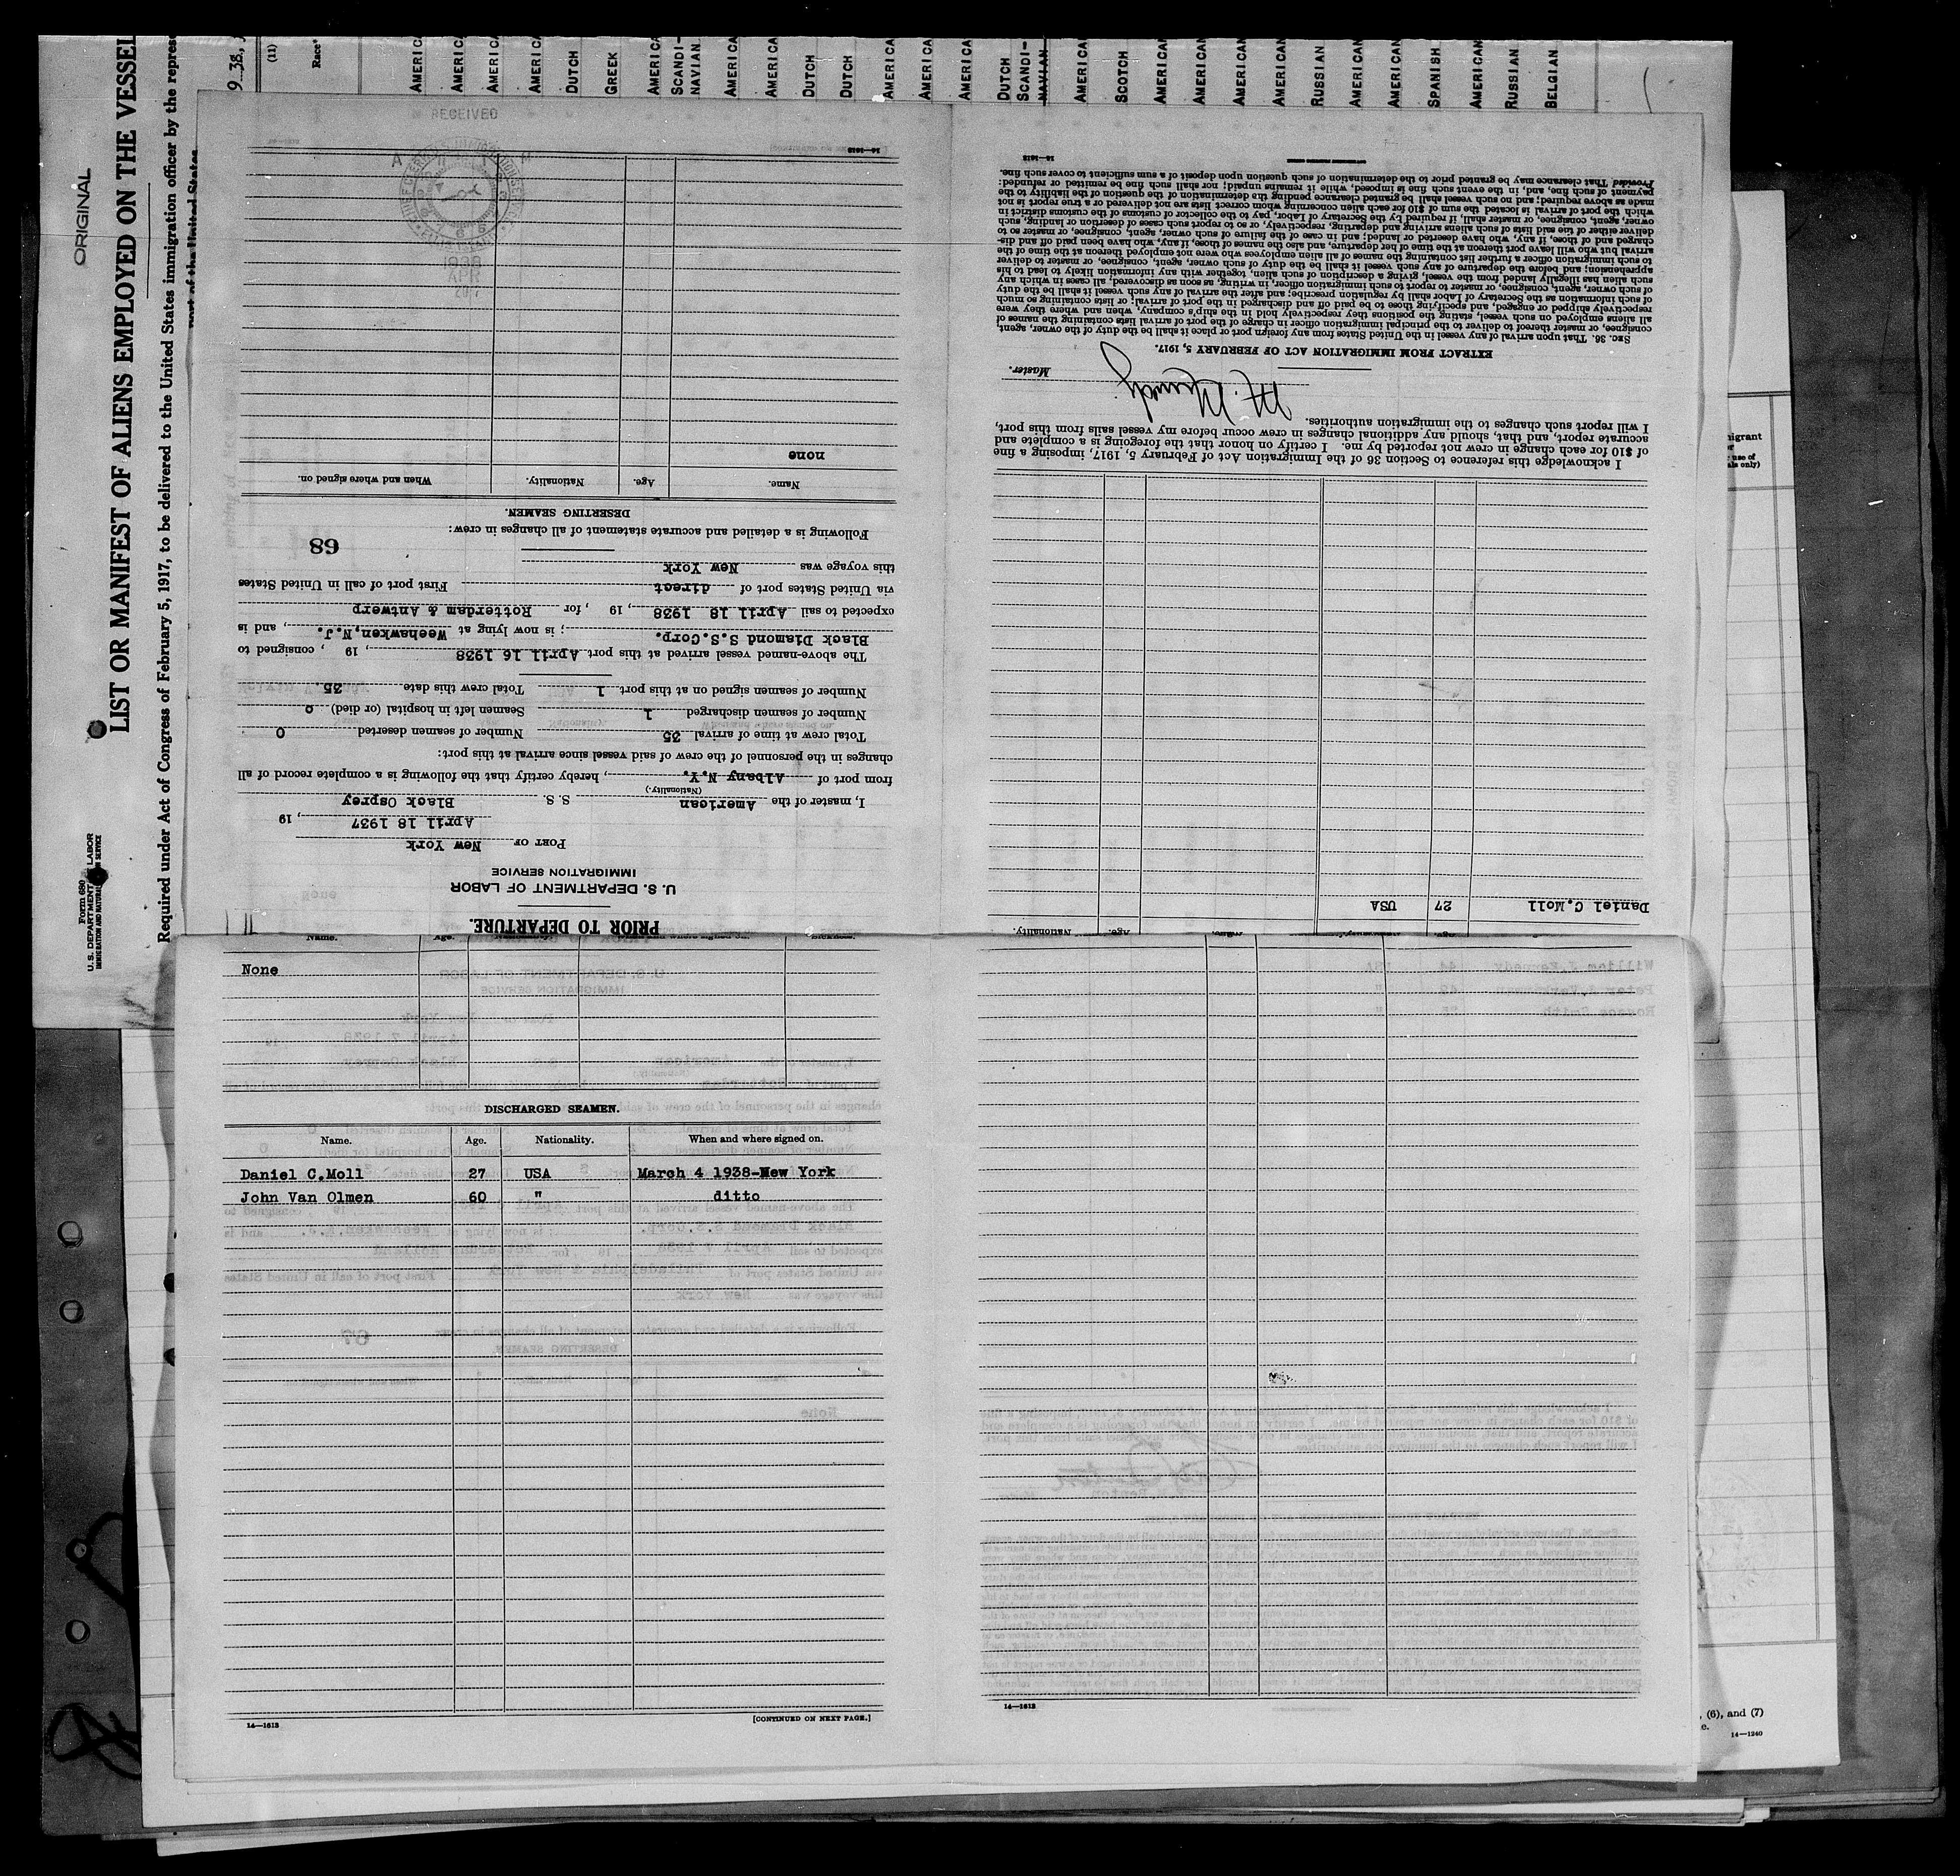 ORIGINAL
LIST OR MANIFEST OF ALIENS EMPLOYED ON THE VESSEL
Required under Act of Congress of February 5, 1917, to be delivered to the United States immigration officer by the
port of the United States
Form 680
U. S. DEPARTMENT LABOR
IMMIGRATION AND SERVICE
(11)
Race*
AMERICA
AMERICA
AMERICA
AMERICA
DUTCH
GREEK
AMERICA
SCANDI-
NAVIAN
AMERICA
AMERICA
DUTCH
DUTCH
AMERICA
AMERICA
AMERICA
DUTCH
SCANDI-
NAVIAN
AMERICA
SCOTCH
AMERICAN
AMERICAN
AMERICAN
AMERICAN
RUSSIAN
AMERICAN
AMERICAN
SPANISH
AMERICAN
RUSSIAN
BELGIAN
RECEIVED
PRIOR TO DEPARTURE.
U. S. DEPARTMENT OF LABOR
IMMIGRATION SERVICE
PORT OF New York
April 18 1937, 19
I, master of the American S. S. Black Osprey
(Nationality.)
from port of Albany N.Y., hereby certify that the following is a complete record of all
changes in the personnel of the crew of said vessel since arrival at this port:
Total crew at time of arrival 35 Number of seamen deserted 0
Number of seamen discharged 1 Seamen left in hospital (or died) 0
Number of seamen signed on at this port 1 Total crew this date 35.
The above-named vessel arrived at this port April 16 1938, 19 , consigned to
Black Diamond S.S.Corp. ; is now lying at Weehawken,N.J. , and is
expected to sail April 18 1938, 19 , for Rotterdam & Antwerp
via United States port of direct First port of call in United States
this voyage was New York
68
Following is a detailed and accurate statement of all changes in crew:
DESERTING SEAMEN.
Name. Age. Nationality. When and where signed on.
none
14—1613
Name. Age. Nationality.
Daniel C.Moll 27 USA
I acknowledge this reference to Section 36 of the Immigration Act of February 5, 1917, imposing a fine
of $10 for each change in crew not reported by me. I certify on honor that the foregoing is a complete and
accurate report, and that, should any additional changes in crew occur before my vessel sails from this port,
I will report such changes to the immigration authorities.
Master.
EXTRACT FROM IMMIGRATION ACT OF FEBRUARY 5, 1917.
SEC. 36. That upon arrival of any vessel in the United States from any foreign port or place it shall be the duty of the owner, agent,
consignee, or master thereof to deliver to the principal immigration officer in charge of the port of arrival lists containing the names of
all aliens employed on such vessel, stating the positions they respectively hold in the ship's company, when and where they were
respectively shipped or engaged, and specifying those to be paid off and discharged in the port of arrival; or lists containing so much
of such information as the Secretary of Labor shall by regulation prescribe; and after the arrival of any such vessel it shall be the duty
of such owner, agent, consignee, or master to report to such immigration officer, in writing, as soon as discovered, all cases in which any
such alien has illegally landed from the vessel, giving a description of such alien, together with any information likely to lead to his
apprehension; and before the departure of any such vessel it shall be the duty of such owner, agent, consignee, or master to deliver
to such immigration officer a further list containing the names of all alien employees who were not employed thereon at the time of the
arrival but who will leave port thereon at the time of her departure, and also the names of those, if any, who have been paid off and dis-
charged and of those, if any, who have deserted or landed; and in case of the failure of such owner, agent, consignee, or master so to
deliver either of the said lists of such aliens arriving and departing, respectively, or so to report such cases of desertion or landing, such
owner, agent, consignee, or master shall, if required by the Secretary of Labor, pay to the collector of customs of the customs district in
which the port of arrival is located the sum of $10 for each alien concerning whom correct lists are not delivered or a true report is not
made as above required; and no such vessel shall be granted clearance pending the determination of the question of the liability to the
payment of such fine, and, in the event such fine is imposed, while it remains unpaid; nor shall such fine be remitted or refunded:
Provided That clearance may be granted prior to the determination of such question upon deposit of a sum sufficient to cover such fine.
14—1613
Name. Age.
None
DISCHARGED SEAMEN.
Name. Age. Nationality. When and where signed on.
Daniel C.Moll 27 USA March 4 1938-New York
John Van Olmen 60 " ditto
14—1613 [CONTINUED ON NEXT PAGE.]
14—1613
, (6), and (7)
14—1240